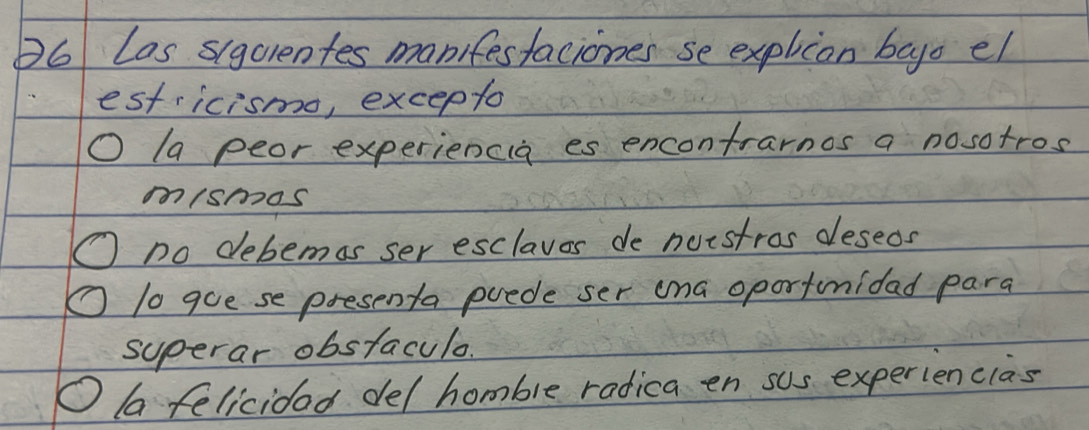 26 Las siguientes manifestaciones se explican bajo el
estoicismo, excepto
O la peor experiencia es encontrarnos a nosotros
mismos
O no debemos ser esclavos de nuestros deseos
O lo que se presenta puede ser una oportunidad para
superar obstaculo.
O la felicidad del hombre radica en sus experiencias